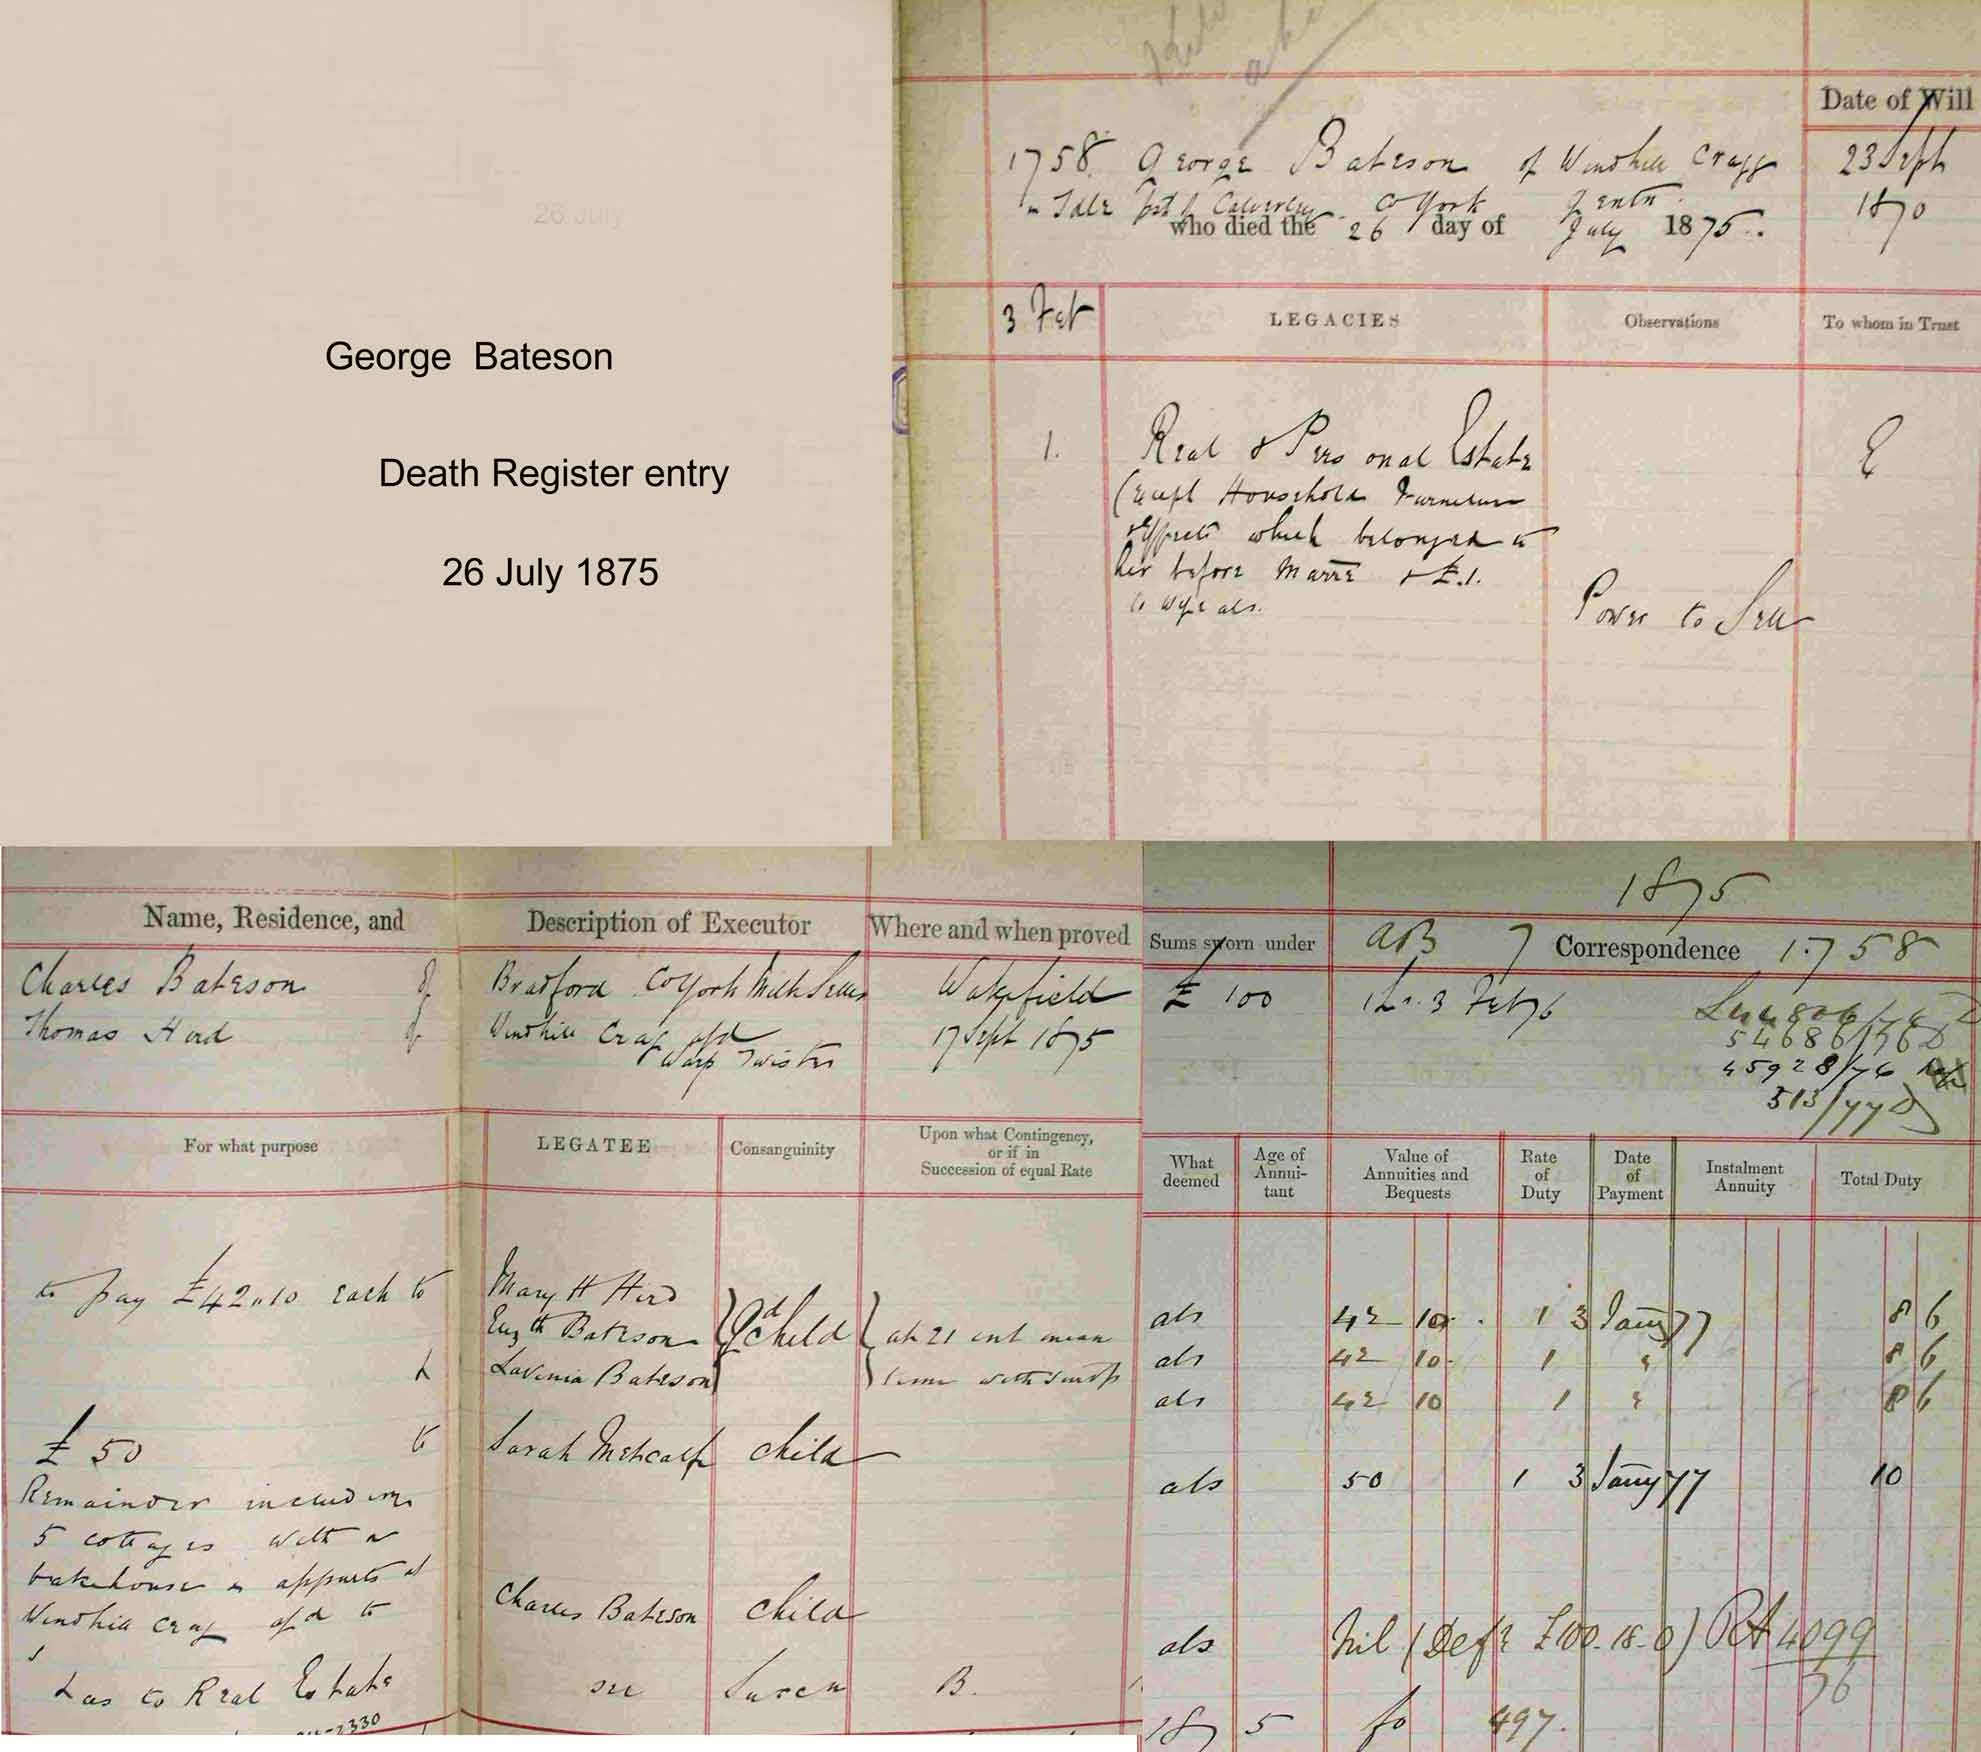 26 July
George Bateson
Death Register entry
26 July 1875
Date of Will
1758. George Bateson of Windhill Cragg
23 Sept
in Idle Co York Gentn.
1870
who died the 26 day of July 1875.
3 Feb
LEGACIES
Observations
To whom in Trust
1.
Real & Personal Estate
E
(except Household Furniture
& Effects which belonged to
her before Marre & £.1.
to wife abs.
Power to Sell
Name, Residence, and
Description of Executor
Where and when proved
Charles Bateson of
Bradford Co York Milk Seller
Wakefield
Thomas Hird of
Windhill Crag afd
17 Sept 1875
Warp Twister
For what purpose
LEGATEE
Consanguinity
Upon what Contingency,
or if in
Succession of equal Rate
to pay £42..10 each to
Mary H Hird
Eliz th Bateson
Gd child
at 21 int mean
Lavinia Bateson
time with
£ 50 to
Sarah Metcalf child
Remainder including
5 cottages with a
bakehouse & appurts at
Windhill Crag afd to
Charles Bateson child
& as to Real Estate
see Succn B.
1875
Sums sworn under
AB 7 Correspondence 1758
£ 100
3 Feb 76
54686/76 D
45928/76
513/77 D
What
deemed
Age of
Annui-
tant
Value of
Annuities and
Bequests
Rate
of
Duty
Date
of
Payment
Instalment
Annuity
Total Duty
abs 42 10 1 3 Jany 77 8 6
abs 42 10 1 " 8 6
abs 42 10 1 " 8 6
abs 50 1 3 Jany 77 10
abs Nil (Defe £100-18-0) RA 4099
76
1875 fo 497.